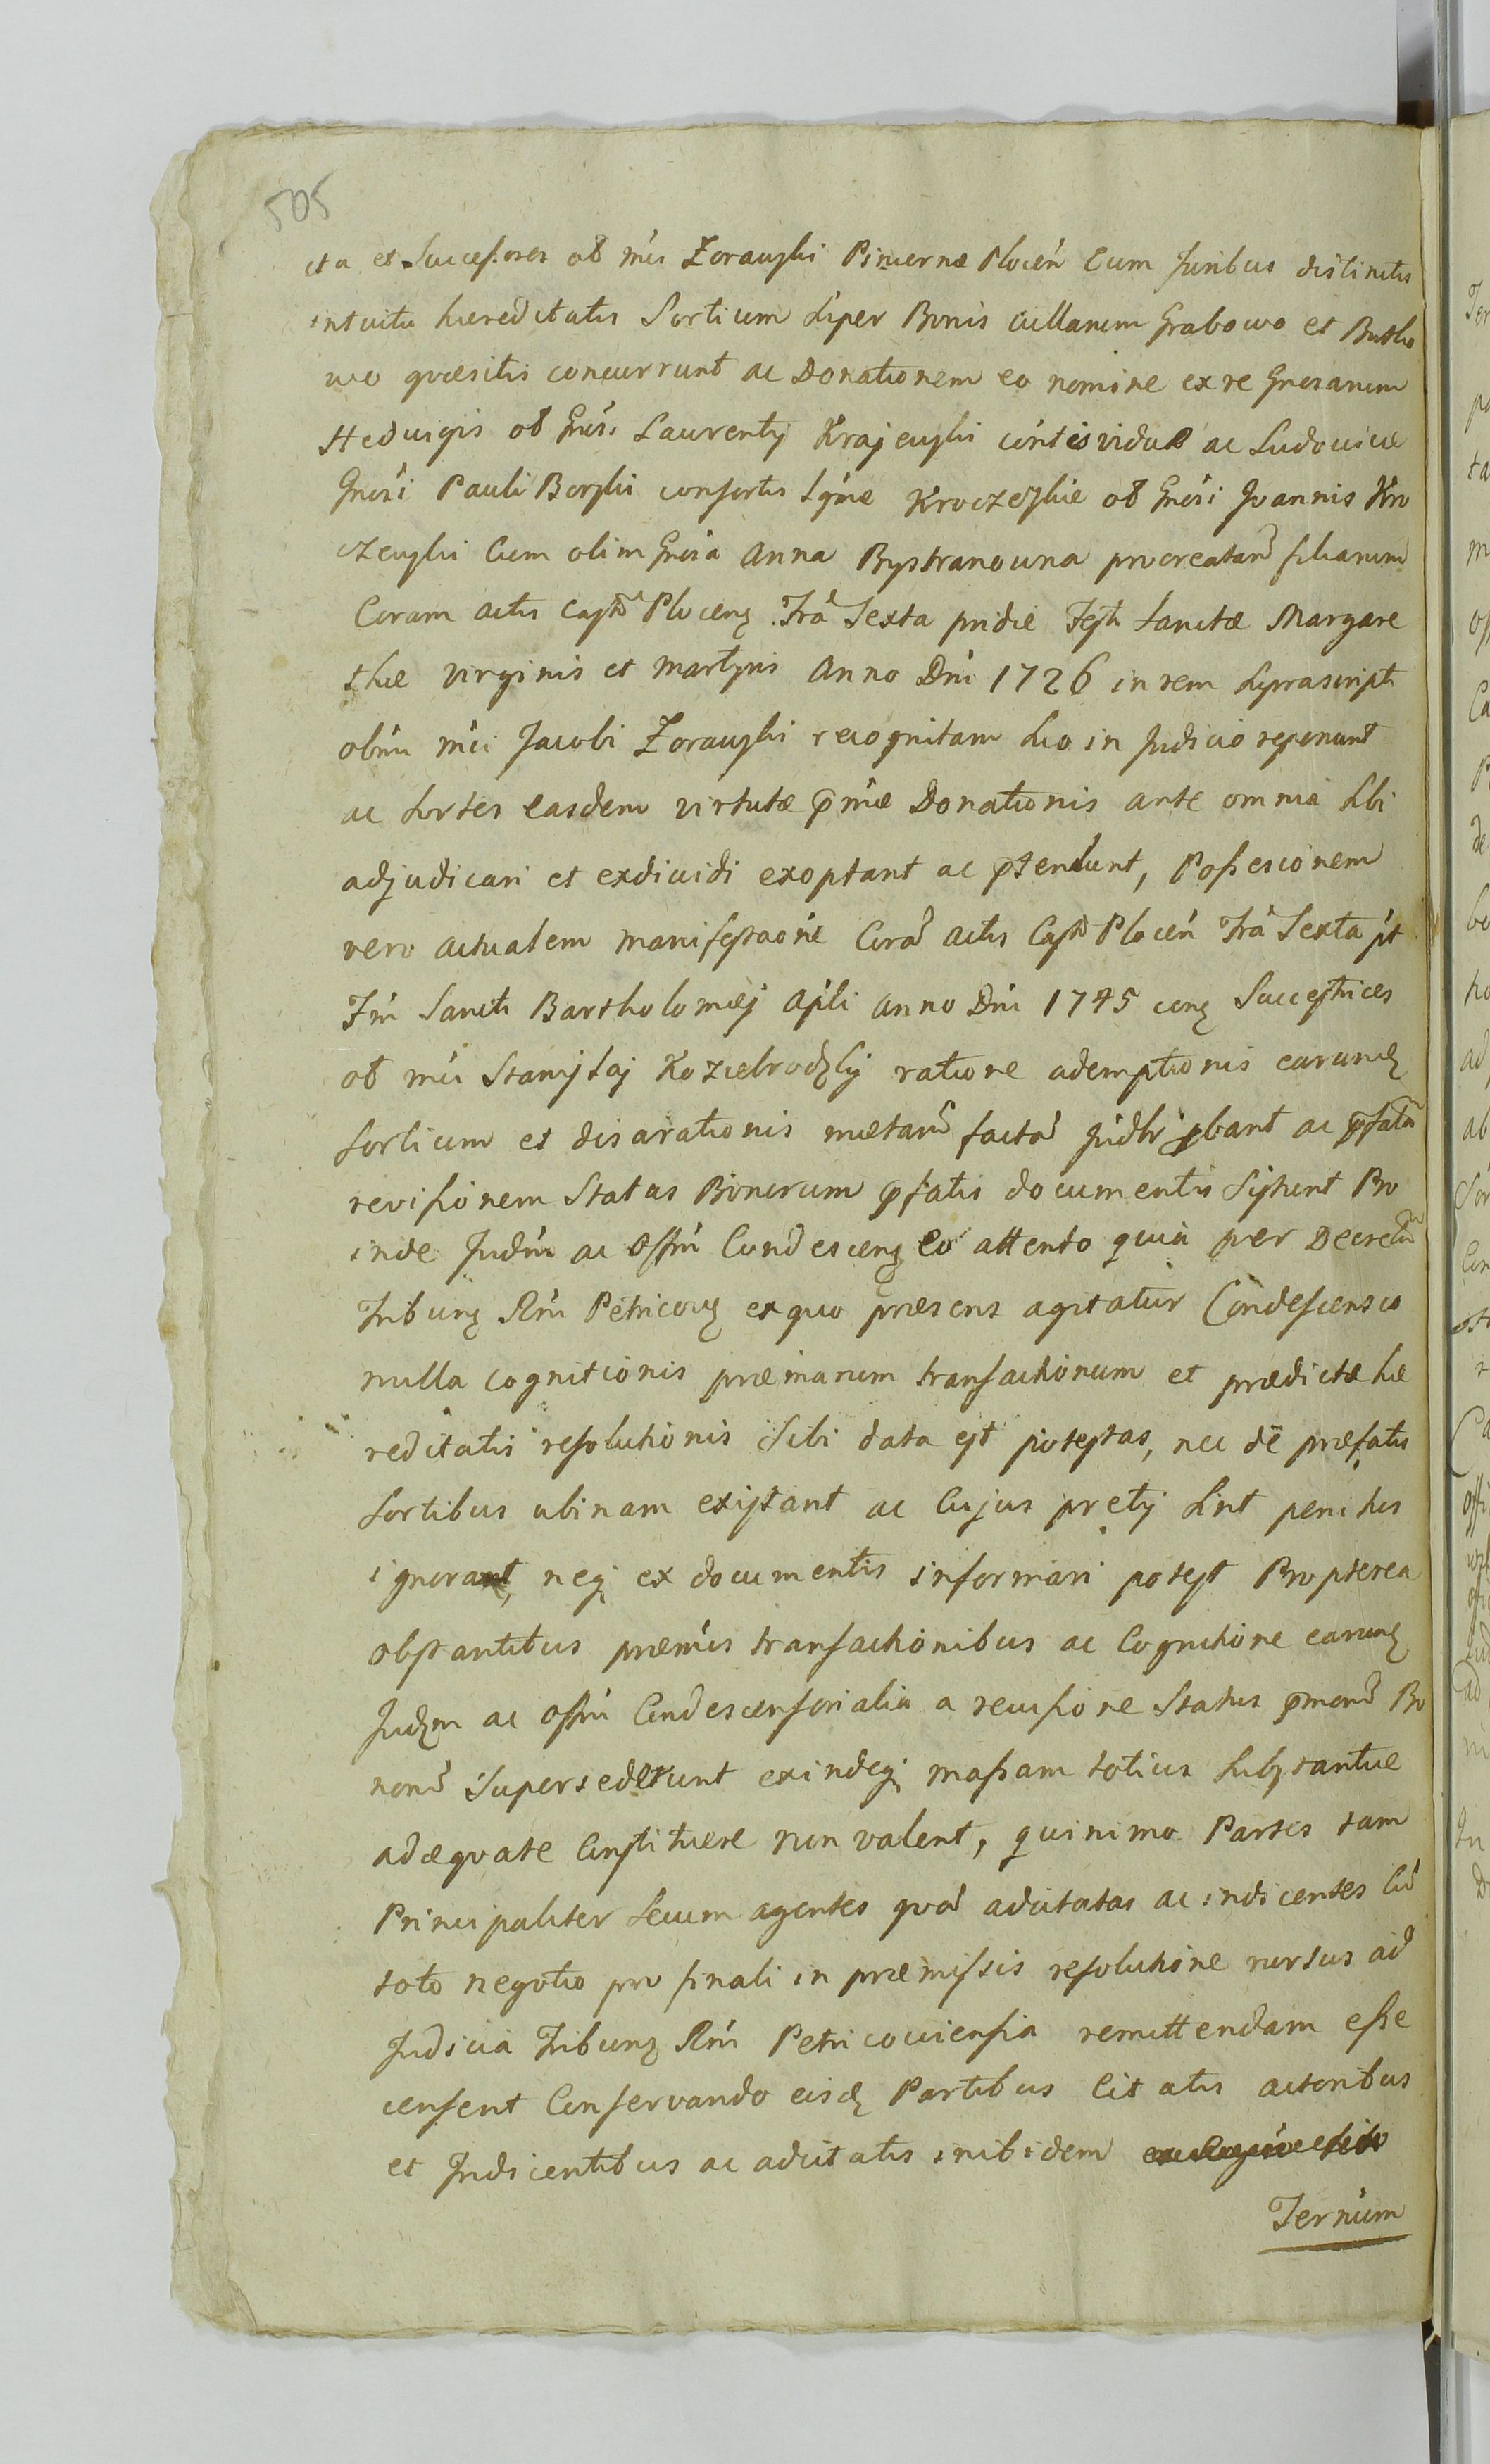 505
ita et Successores ol mci Zorawski Pincernæ Plocen Cum Juribus distinctis
intuitu hæreditatis Sortium super Bonis villarum Grabowo et Butko
wo quæsitis concurrunt ac Donationem eo nomine ex re Gnosarum
Hedvigis ol Gnosi Laurentij Krajewski vidua ac Ludovicæ
Gnosi Pauli Borski consortis Kroczeskie ol Gnosi Joannis Kro
czewski Cum olim Gnosa Anna Bystranowna procreatarũ filiarum
Coram actis Castrũ Plocenȝ fra Sexta pridie Festi Sanctæ Margare
thæ virginis et martyris Anno Dni 1726 in rem suprascripti
olim mci Jacobi Zorawski recognitam hco in Judicio reponunt
ac Sortes easdem virtute pmæ Donationis ante omnia sibi
adjudicari et exdividi exoptant ac ptendunt, Possesionem
vero actualem manifestaone Corã actis Castrũ Plocen fra Sexta pt
Fm Sancti Bartholomæj Apli Anno Dni 1745 conȝ Succestrices
ol mci Stanislaj Koziebrodskij ratione ademptionis earundȝ
sortium et disarationis metarũ factã Judlr pbant ac pfatã
revisionem Status Bonorum pfatis documentis Sistunt Pro
inde Judm ac Offm Condescenȝ eo attento quia per Decretũ
Tribunȝ Rni Petricovȝ ex quo præsens agitatur Condescensio
nulla cognitionis præmarum transactionum et prædictæ hæ
reditatis resolutionis Sibi data est potestas, nec de præfatis
Sortibus ubinam existant ac Cujus pretij sint penitus
ignorant, neqȝ ex documentis informari potest Propterea
obstantibus præmis transactionibus ac Cognitione earundȝ
Judȝm ac offm Condescensorialia a revisione Status pmorũ Bo
norũ Supersedetunt exindeqȝ massam totius substantiæ
adæquate Constituere non valent, quinimo Partes tam
Principaliter Secum agentes quã adcitatas ac indicentes Cũ
toto negotio pro finali in præmissis resolutione rursus ad
Judicia Tribunȝ Rni Petricoviensia remittendam esse
censent Conservando eisdȝ Partibus Citatis actoribus
et Indicentibus ac adcitatis inibidem
Ternum